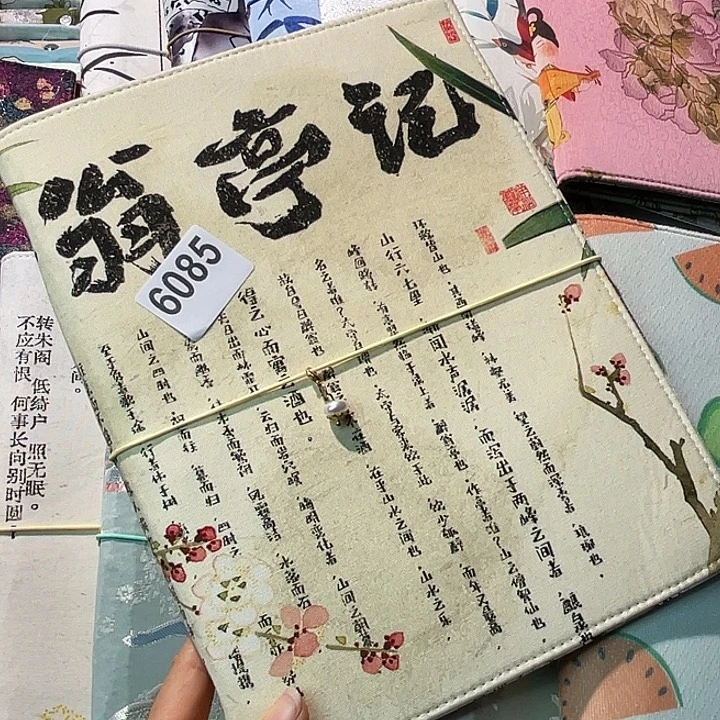 翁亭记
6085
环滁皆山也 其西南诸峰 林壑尤美 望之蔚然而深秀者 琅琊也
山行六七里 渐闻水声潺潺 而泻出于两峰之间者 酿泉也
峰回路转 有亭翼然临于泉上者 翁亭也 作亭者谁?山之僧智仙也
名之者谁?太守自谓也 太守与客来饮于此 饮少辄醉 而年又最高
故自号曰醉翁也 在酒 在乎山水之间也 山水之乐
得之心而寓之酒也。
夫日出而林霏 云归而岩穴暝 晦明变化者 山间之朝
而幽香 佳木秀而繁阴 风霜高洁 水落而石
山间之四时也 朝而往 暮而归 四时之
至于负者歌于途 行者休于树
间。
转朱阁 低绮户 照无眠。
不应有恨 何事长向别时圆